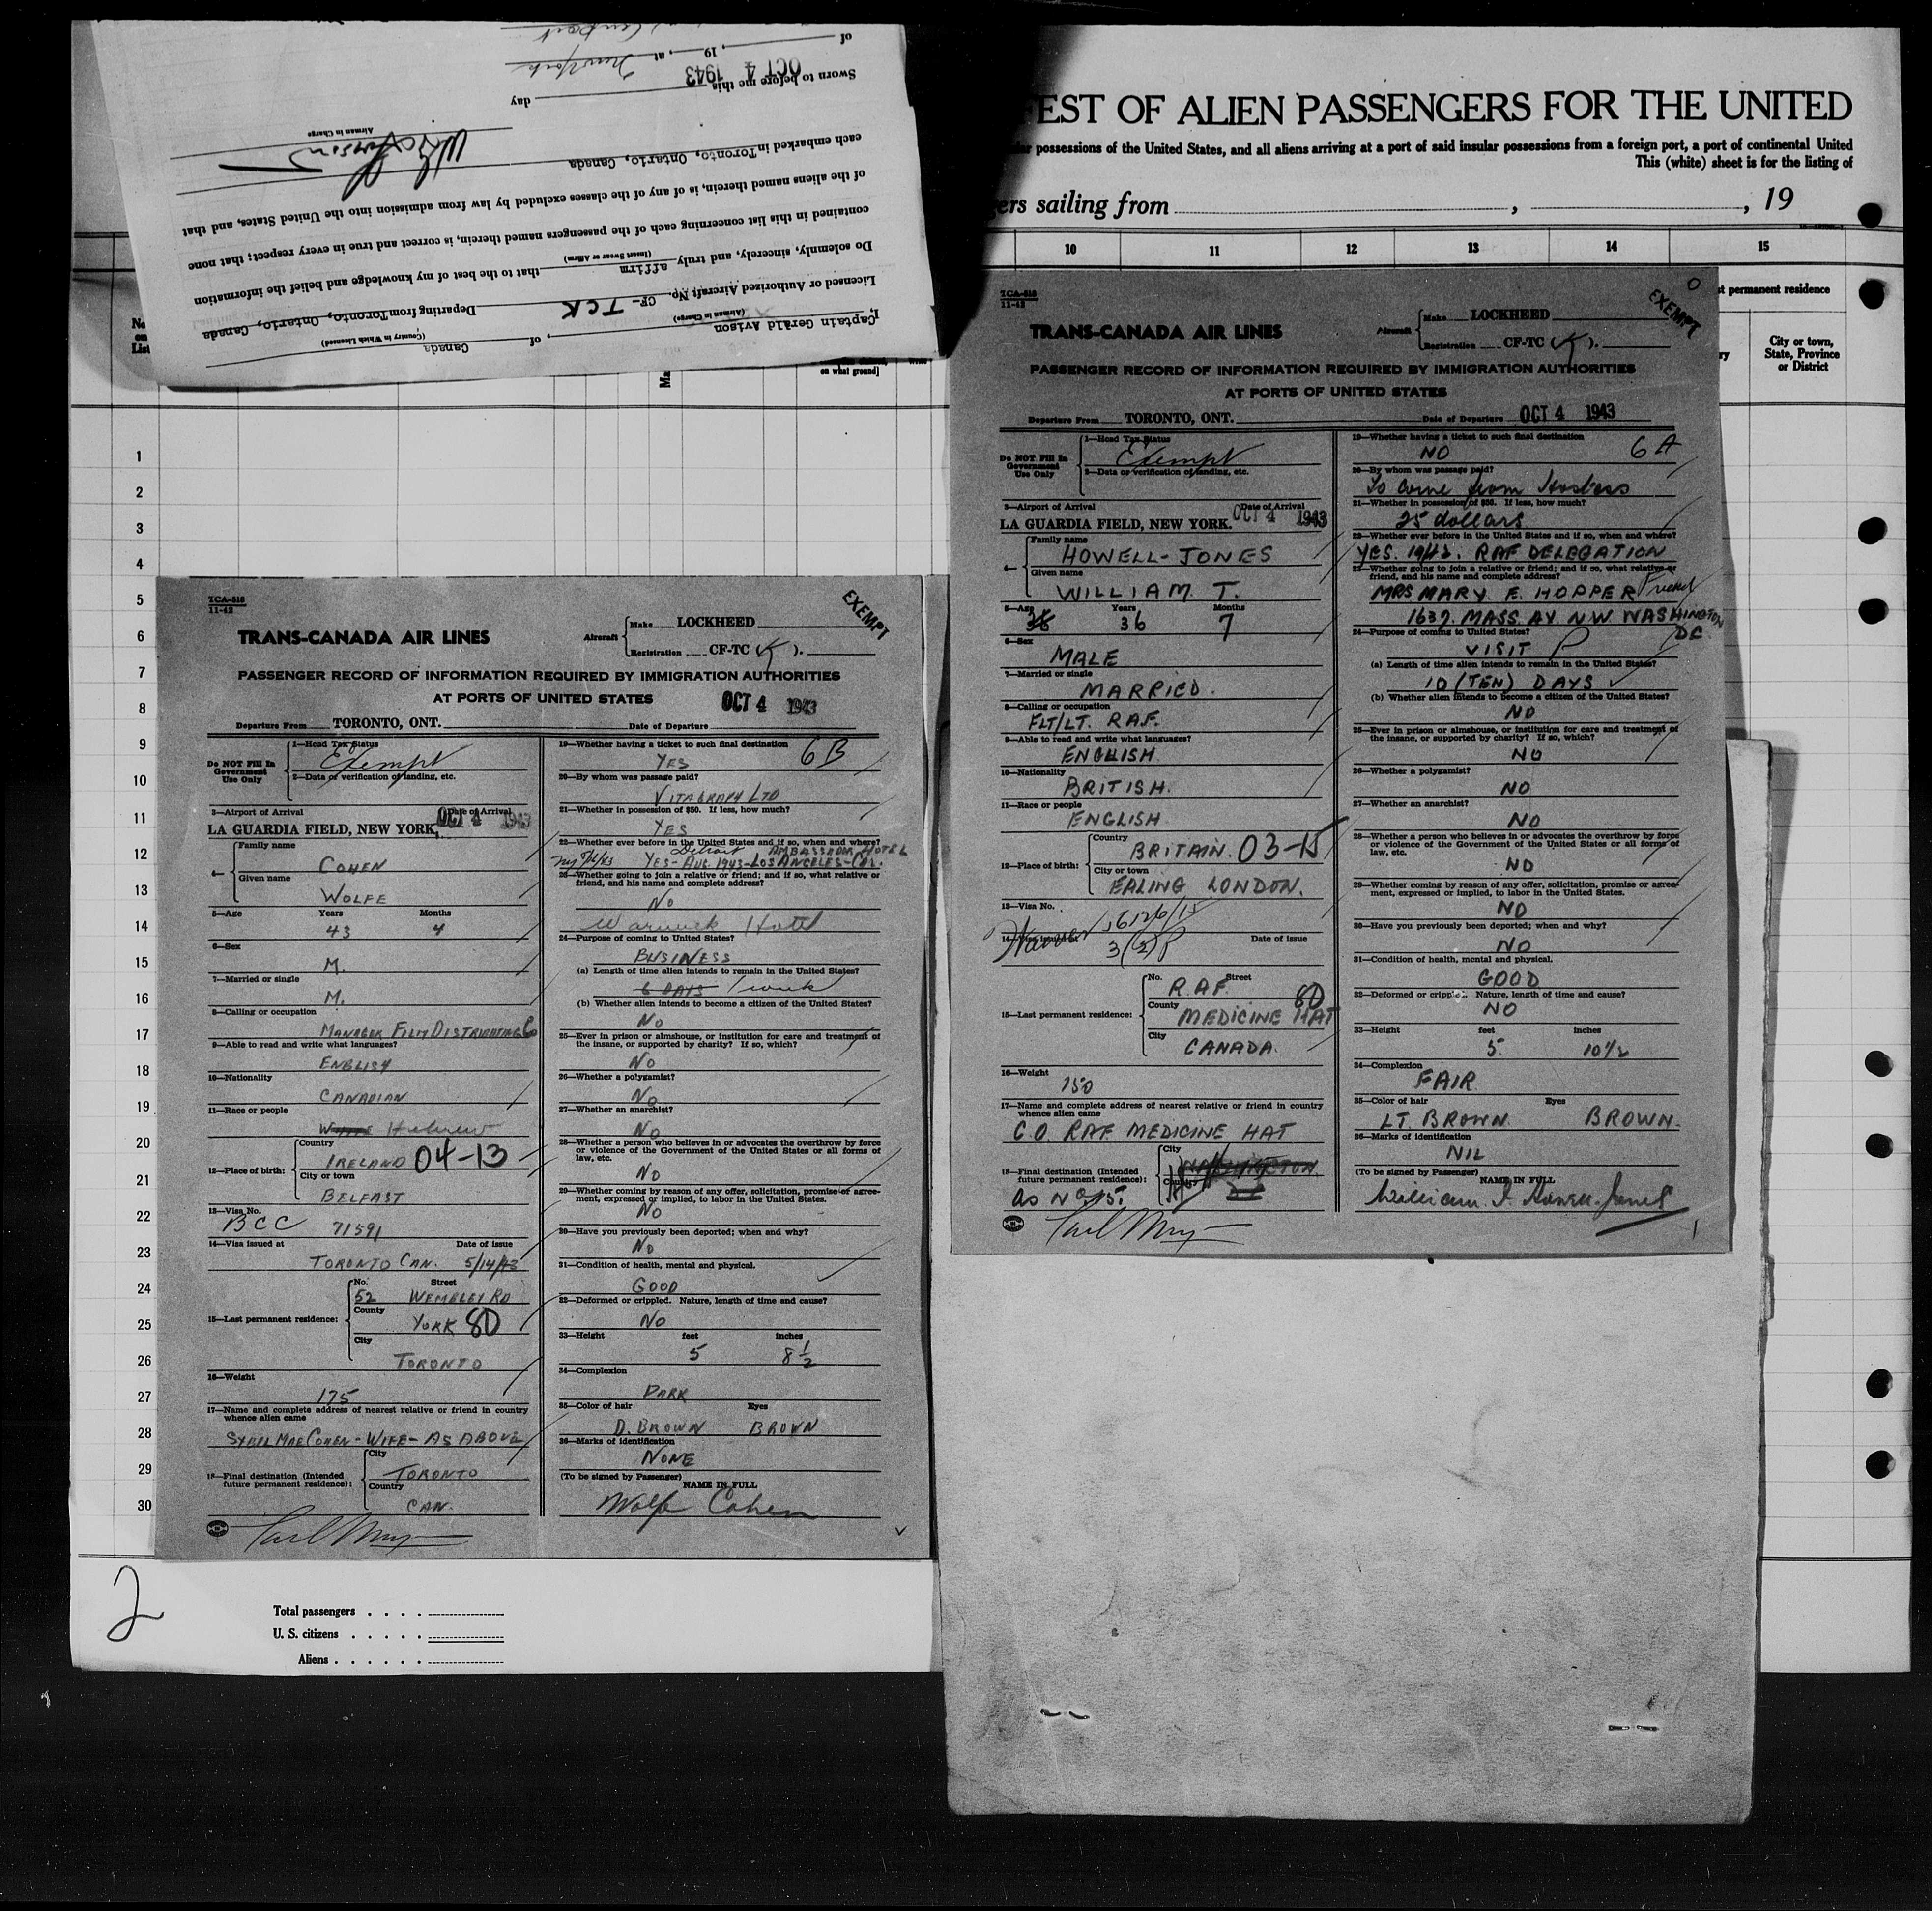 I, Captain Gerald Avison, of Canada
(Airman in Charge) (Country in Which Licensed)
Licensed or Authorized Aircraft No. CF- TCK Departing from Toronto, Ontario, Canada
Do solemnly, sincerely, and truly affirm that to the best of my knowledge and belief the information
(Insert Swear or Affirm)
contained in this list concerning each of the passengers named therein, is correct and true in every respect; that none
of the aliens named therein, is of any of the classes excluded by law from admission into the United States, and that
each embarked in Toronto, Ontario, Canada
Airman in Charge
Sworn to before me this day
OCT 4 1943
of , 19 , at New York
FEST OF ALIEN PASSENGERS FOR THE UNITED
possessions of the United States, and all aliens arriving at a port of said insular possessions from a foreign port, a port of continental United
This (white) sheet is for the listing of
ers sailing from , , 19
10 11 12 13 14 15
t permanent residence
City or town,
State, Province
or District
No
on
List
Ma
on what ground]
1
2
3
4
5
6
7
8
9
10
11
12
13
14
15
16
17
18
19
20
21
22
23
24
25
26
27
28
29
30
TCA-515
11-42
EXEMPT
TRANS-CANADA AIR LINES
Aircraft Make LOCKHEED
Registration CF-TC (K).
PASSENGER RECORD OF INFORMATION REQUIRED BY IMMIGRATION AUTHORITIES
AT PORTS OF UNITED STATES
OCT 4 1943
Departure From TORONTO, ONT. Date of Departure
Do NOT Fill In Government Use Only
1—Head Tax Status
Exempt
2—Data or verification of landing, etc.
3—Airport of Arrival Date of Arrival
LA GUARDIA FIELD, NEW YORK, OCT 4 1943
4— Family name
COHEN
Given name
WOLFE
5—Age Years Months
43 4
6—Sex
M.
7—Married or single
M.
8—Calling or occupation
MANAGER FILM DISTRIBUTING CO
9—Able to read and write what languages?
ENGLISH
10—Nationality
CANADIAN
11—Race or people
WHITE Hebrew
12—Place of birth: Country
IRELAND 04-13
City or town
BELFAST
13—Visa No.
BCC 71591
14—Visa issued at Date of issue
TORONTO CAN. 5/14/43
15—Last permanent residence: No. Street
52 WEMBLEY RD
County
YORK 80
City
TORONTO
16—Weight
175
17—Name and complete address of nearest relative or friend in country
whence alien came
SYBEL MAE COHEN - WIFE - AS ABOVE
18—Final destination (Intended
future permanent residence): City
TORONTO
Country
CAN.
19—Whether having a ticket to such final destination 6B
YES
20—By whom was passage paid?
VITAGRAPH LTD
21—Whether in possession of $50. If less, how much?
YES
22—Whether ever before in the United States and if so, when and where?
Detroit AMBASSADOR HOTEL
YES - AUG. 1943 - LOS ANGELES - CAL.
23—Whether going to join a relative or friend; and if so, what relative or
friend, and his name and complete address?
NO
Warwick Hotel
24—Purpose of coming to United States?
BUSINESS
(a) Length of time alien intends to remain in the United States?
6 DAYS 1 week
(b) Whether alien intends to become a citizen of the United States?
NO
25—Ever in prison or almshouse, or institution for care and treatment of
the insane, or supported by charity? If so, which?
NO
26—Whether a polygamist?
NO
27—Whether an anarchist?
NO
28—Whether a person who believes in or advocates the overthrow by force
or violence of the Government of the United States or all forms of
law, etc.
NO
29—Whether coming by reason of any offer, solicitation, promise or agree-
ment, expressed or implied, to labor in the United States.
NO
30—Have you previously been deported; when and why?
NO
31—Condition of health, mental and physical.
GOOD
32—Deformed or crippled. Nature, length of time and cause?
NO
33—Height feet inches
5 8 1/2
34—Complexion
DARK
35—Color of hair Eyes
D. BROWN BROWN
36—Marks of identification
NONE
(To be signed by Passenger)
NAME IN FULL
Wolfe Cohen
2
Total passengers
U. S. citizens
Aliens
TCA-515
11-42
EXEMPT
TRANS-CANADA AIR LINES
Aircraft Make LOCKHEED
Registration CF-TC (K).
PASSENGER RECORD OF INFORMATION REQUIRED BY IMMIGRATION AUTHORITIES
AT PORTS OF UNITED STATES
Departure From TORONTO, ONT. Date of Departure OCT 4 1943
Do NOT Fill In Government Use Only
1—Head Tax Status
Exempt
2—Data or verification of landing, etc.
3—Airport of Arrival Date of Arrival
LA GUARDIA FIELD, NEW YORK. OCT 4 1943
4— Family name
HOWELL-JONES
Given name
WILLIAM T.
5—Age Years Months
36 7
6—Sex
MALE
7—Married or single
MARRIED.
8—Calling or occupation
FLT/LT. R.A.F.
9—Able to read and write what languages?
ENGLISH
10—Nationality
BRITISH.
11—Race or people
ENGLISH
12—Place of birth: Country
BRITAIN. 03-15
City or town
EALING LONDON.
13—Visa No.
14—Visa issued at Date of issue
3(2)P
15—Last permanent residence: No. Street
R.A.F. 80
County
MEDICINE HAT
City
CANADA.
16—Weight
150
17—Name and complete address of nearest relative or friend in country
whence alien came
C.O. RAF MEDICINE HAT
18—Final destination (Intended
future permanent residence): City
WASHINGTON
Country
as No 15.
19—Whether having a ticket to such final destination
NO 6A
20—By whom was passage paid?
To come from
21—Whether in possession of $50. If less, how much?
25 dollars.
22—Whether ever before in the United States and if so, when and where?
YES. 1943. RAF DELEGATION
23—Whether going to join a relative or friend; and if so, what relative or
friend, and his name and complete address?
MRS MARY E. HOPPER Friend
1637. MASS. AV NW WASHINGTON
DC.
24—Purpose of coming to United States?
VISIT P
(a) Length of time alien intends to remain in the United States?
10 (TEN) DAYS
(b) Whether alien intends to become a citizen of the United States?
NO
25—Ever in prison or almshouse, or institution for care and treatment of
the insane, or supported by charity? If so, which?
NO
26—Whether a polygamist?
NO
27—Whether an anarchist?
NO
28—Whether a person who believes in or advocates the overthrow by force
or violence of the Government of the United States or all forms of
law, etc.
NO
29—Whether coming by reason of any offer, solicitation, promise or agree-
ment, expressed or implied, to labor in the United States.
NO
30—Have you previously been deported; when and why?
NO
31—Condition of health, mental and physical.
GOOD
32—Deformed or crippled. Nature, length of time and cause?
NO
33—Height feet inches
5. 10 1/2
34—Complexion
FAIR
35—Color of hair Eyes
LT BROWN. BROWN.
36—Marks of identification
NIL
(To be signed by Passenger)
NAME IN FULL
William T. Howell-Jones